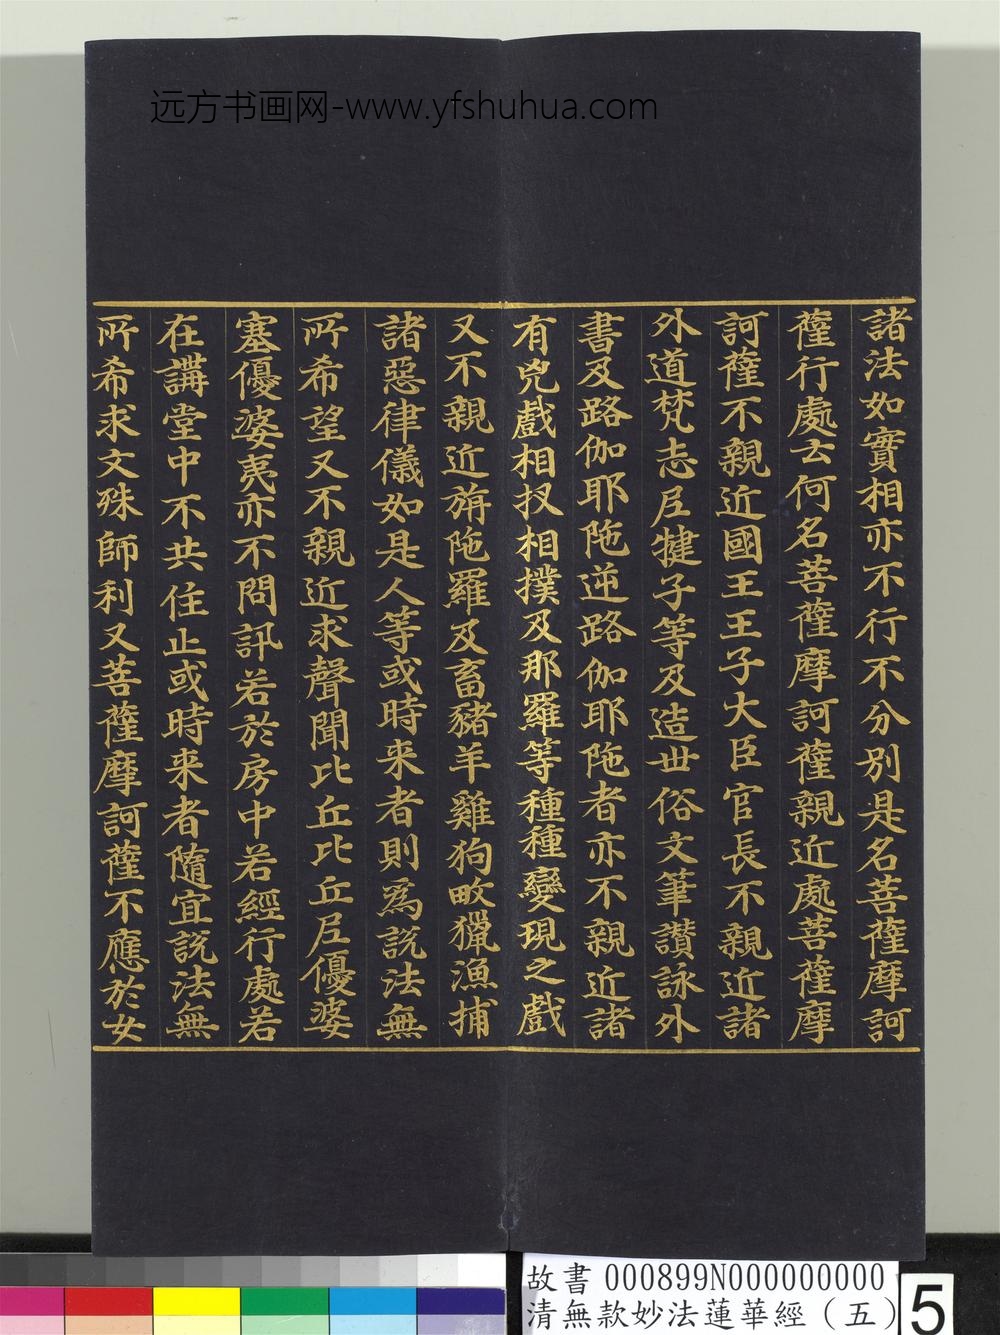 远方书画网-www.yfshuhua.com
諸法如實相亦不行不分別是名菩薩摩訶
薩行處云何名菩薩摩訶薩親近處菩薩摩
訶薩不親近國王王子大臣官長不親近諸
外道梵志尼犍子等及造世俗文筆讚詠外
書及路伽耶陁逆路伽耶陁者亦不親近諸
有兇戲相扠相撲及那羅等種種變現之戲
又不親近旃陁羅及畜豬羊雞狗畋獵漁捕
諸惡律儀如是人等或時来者則爲說法無
所希望又不親近求聲聞比丘比丘尼優婆
塞優婆夷亦不問訊若於房中若經行處若
在講堂中不共住止或時来者隨宜説法無
所希求文殊師利又菩薩摩訶薩不應於女
故書 000899N000000000
清無款妙法蓮華經（五）
5